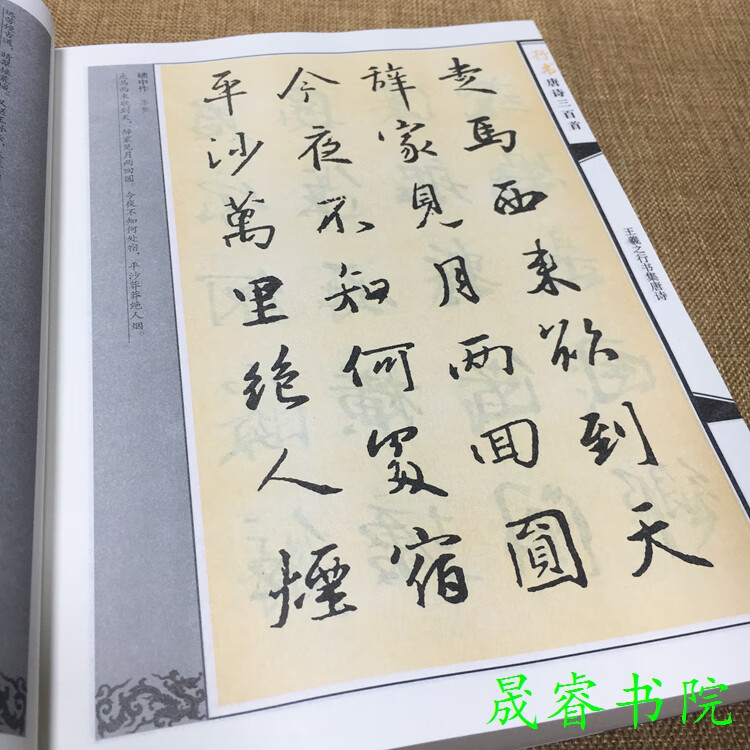 行书 唐诗三百首
王羲之行书集唐诗
走馬西来欲到天
辞家見月兩回圓
今夜不知何處宿
平沙萬里絶人煙
碛中作 岑参
走马西来欲到天，辞家见月两回圆。今夜不知何处宿，平沙莽莽绝人烟。
晟睿书院